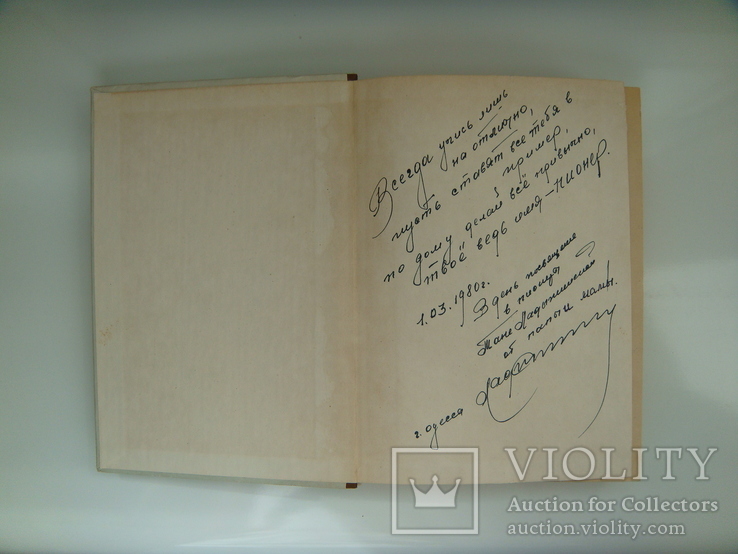 Всегда учись лишь
на отлично,
пусть ставят все тебя в
пример,
по дому делай всё привычно,
твоё ведь имя-Пионер.
1.03.1980г.
В день посвещения
в пионеры
Тане
от папы и мамы.
г. Одесса
VIOLITY
Auction for Collectors
auction.violity.com